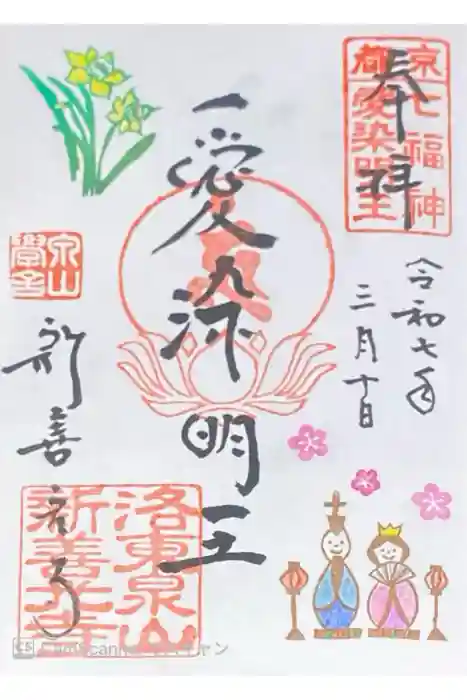 奉拝
京七福神
都愛染明王
令和七年
三月十日
愛染明王
泉山
新善光寺
洛東泉山
新善光寺
CS CamScanner でスキャン